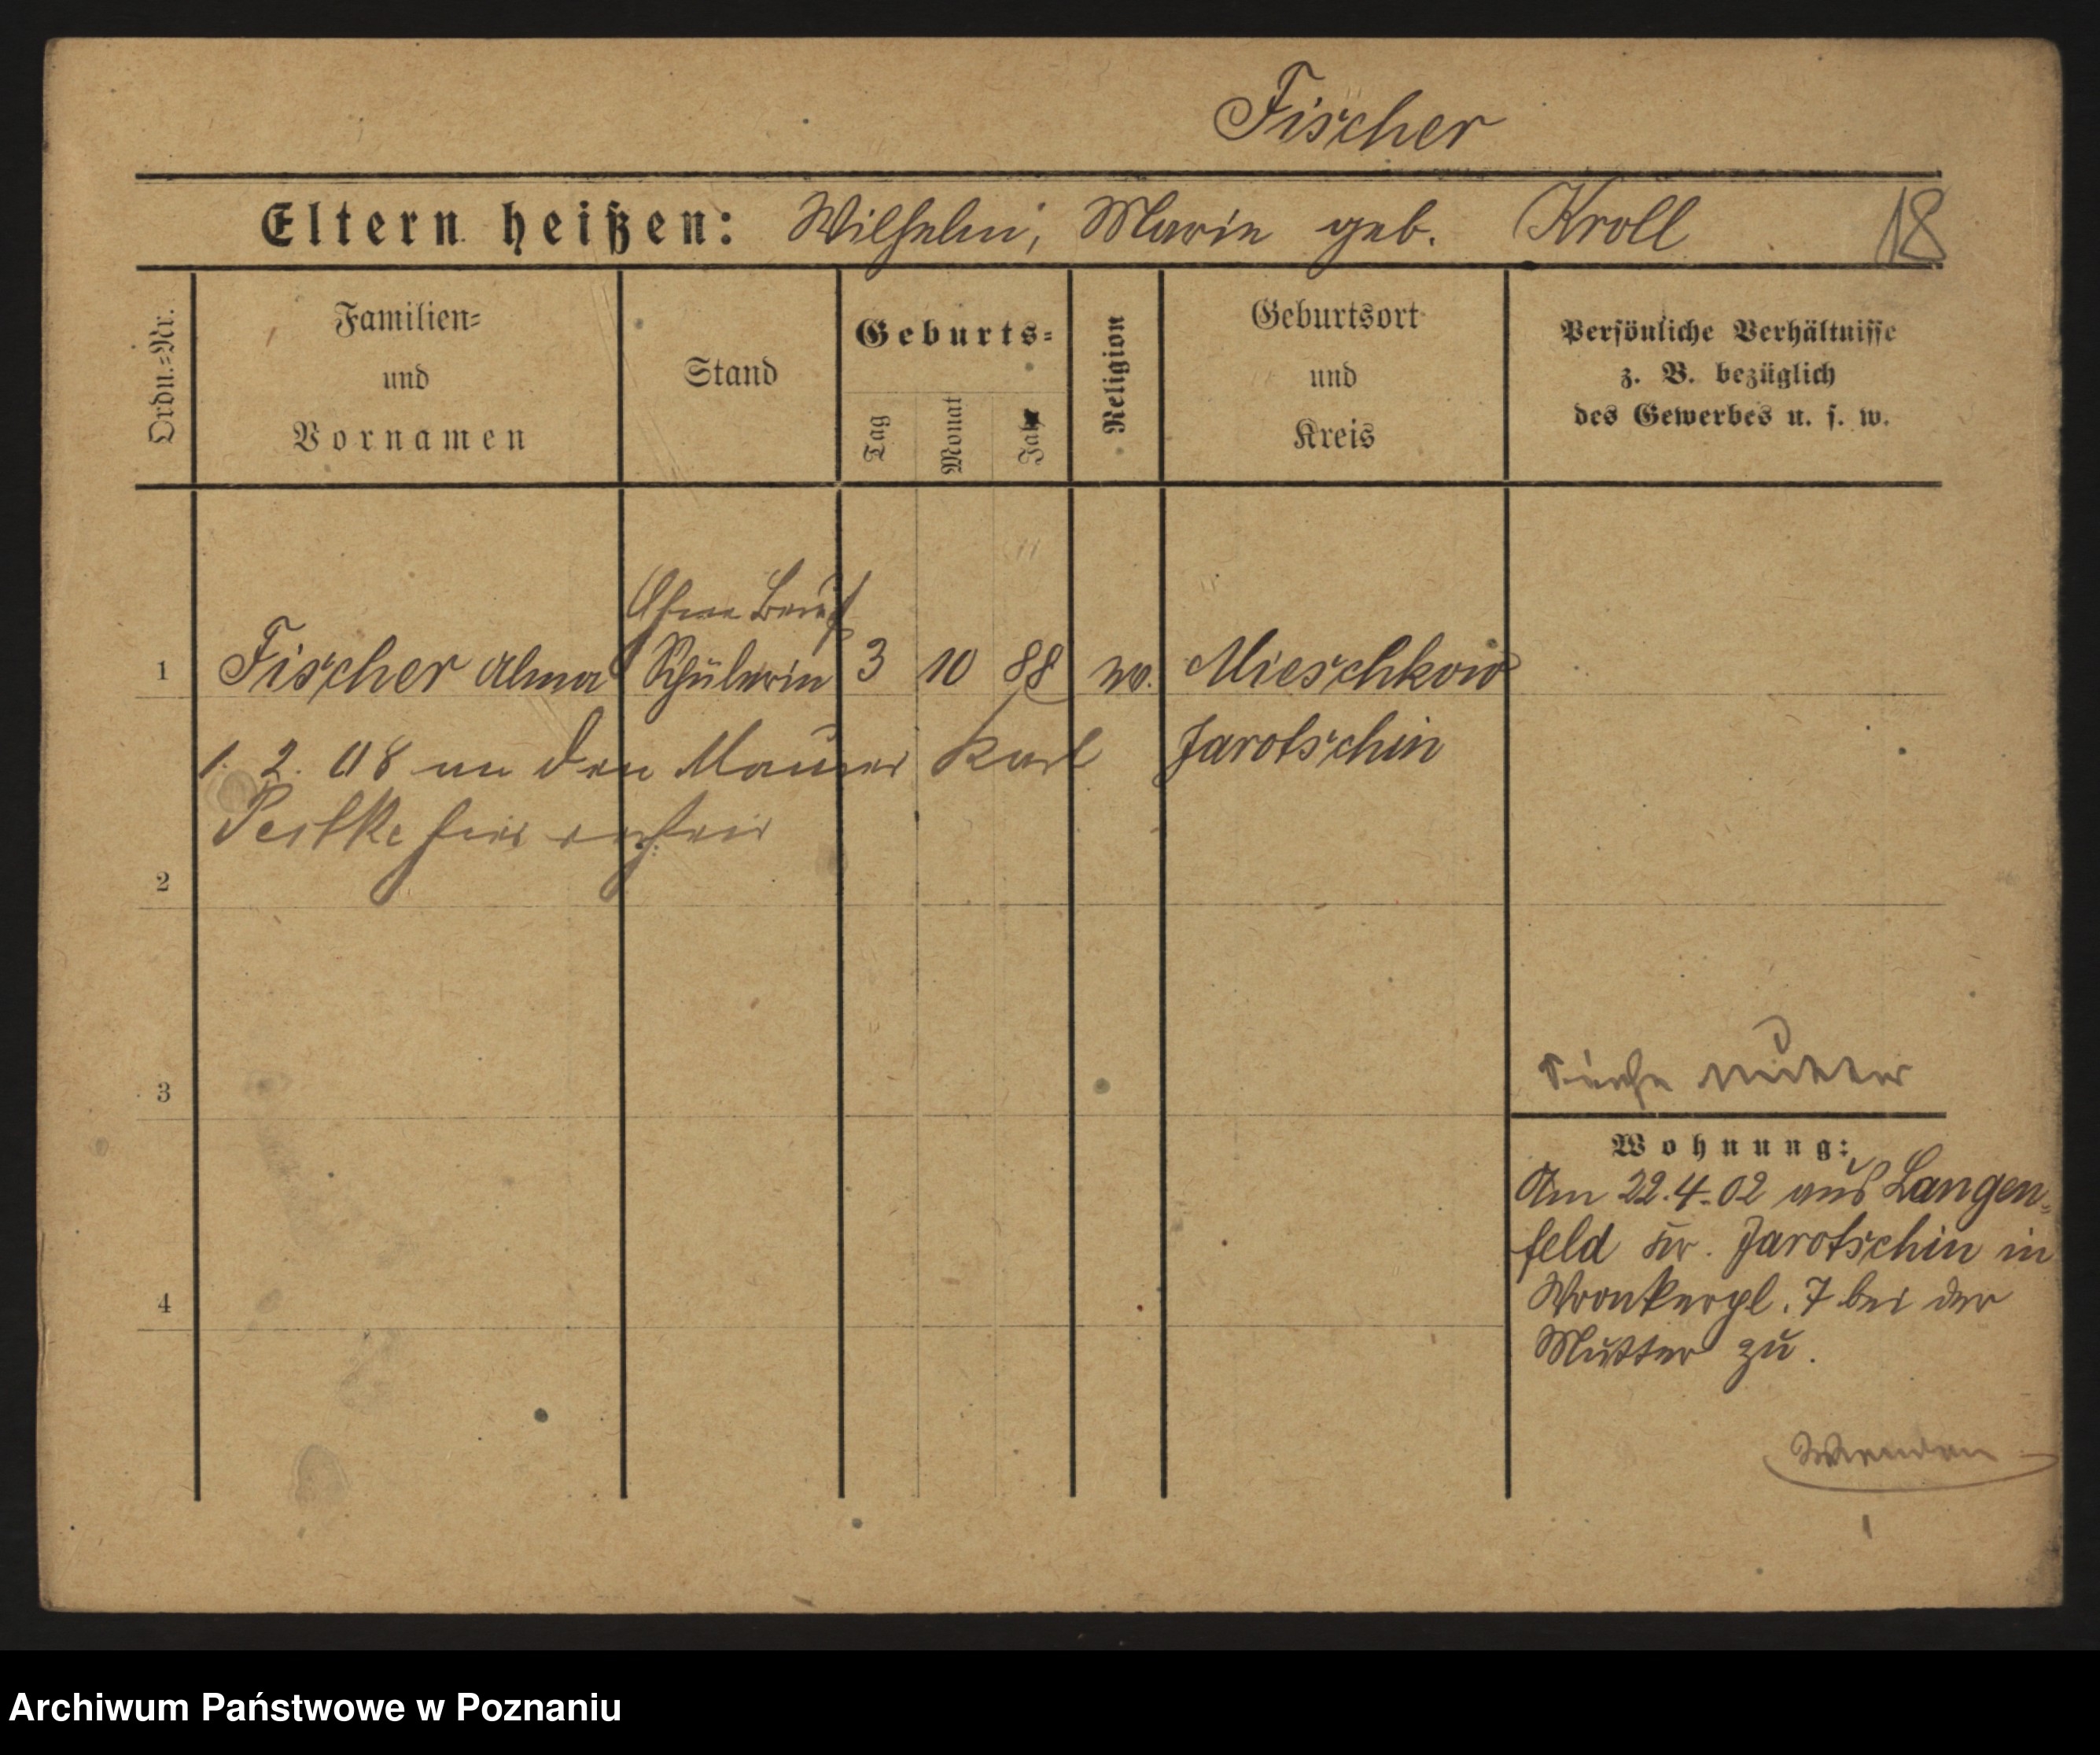 Fischer
Eltern heißen: Wilhelm, Marie geb. Kroll 18
Ordn.=Nr.
Familien=
und
Vornamen
Stand
Geburts=
Tag
Monat
Jahr
Religion
Geburtsort
und
Kreis
Persönliche Verhältnisse
z. B. bezüglich
des Gewerbes u. s. w.
Ohne Beruf
1 Fischer Alma Schülerin 3 10 88 ev. Mieschkow
Jarotschin
1. 2. 08 an den Maurer Karl
Pestke hier verheir
2
3
Siehe Mutter
Wohnung:
Am 22.4.02 aus Langen=
feld Kr. Jarotschin in
Wronkerpl. 7 bei der
4
Mutter zu.
Wenden
Archiwum Państwowe w Poznaniu